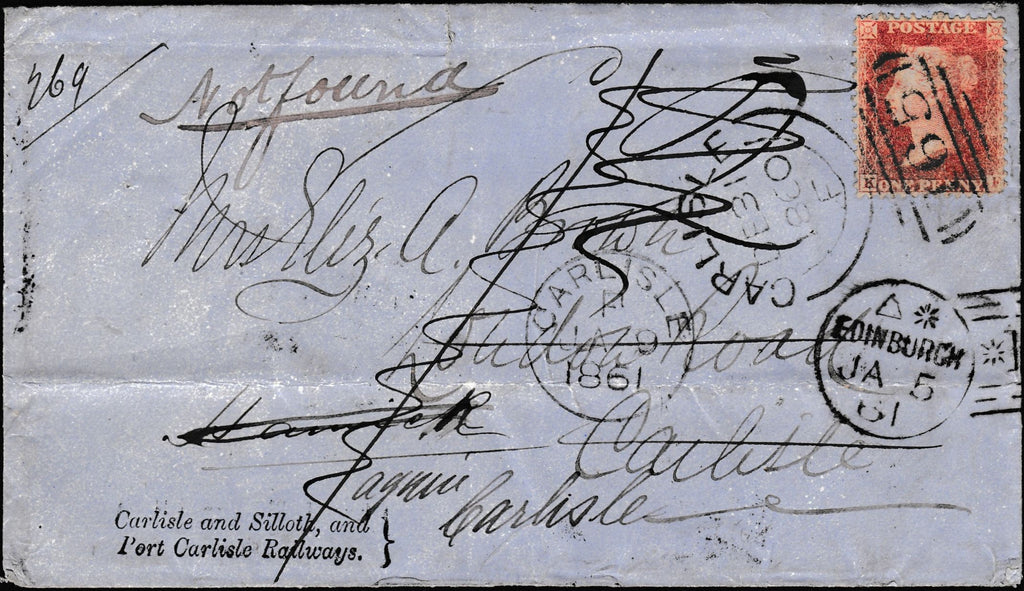 269
Not found
POSTAGE
659
ONE PENNY
Mrs Eliz. A. Brown
CARLISLE
E
CARLISLE
A
JA 9
1861
London Road
EDINBURGH
JA 5
61
Carlisle
Hawick
Carlisle
Carlisle and Silloth, and
Port Carlisle Railways.